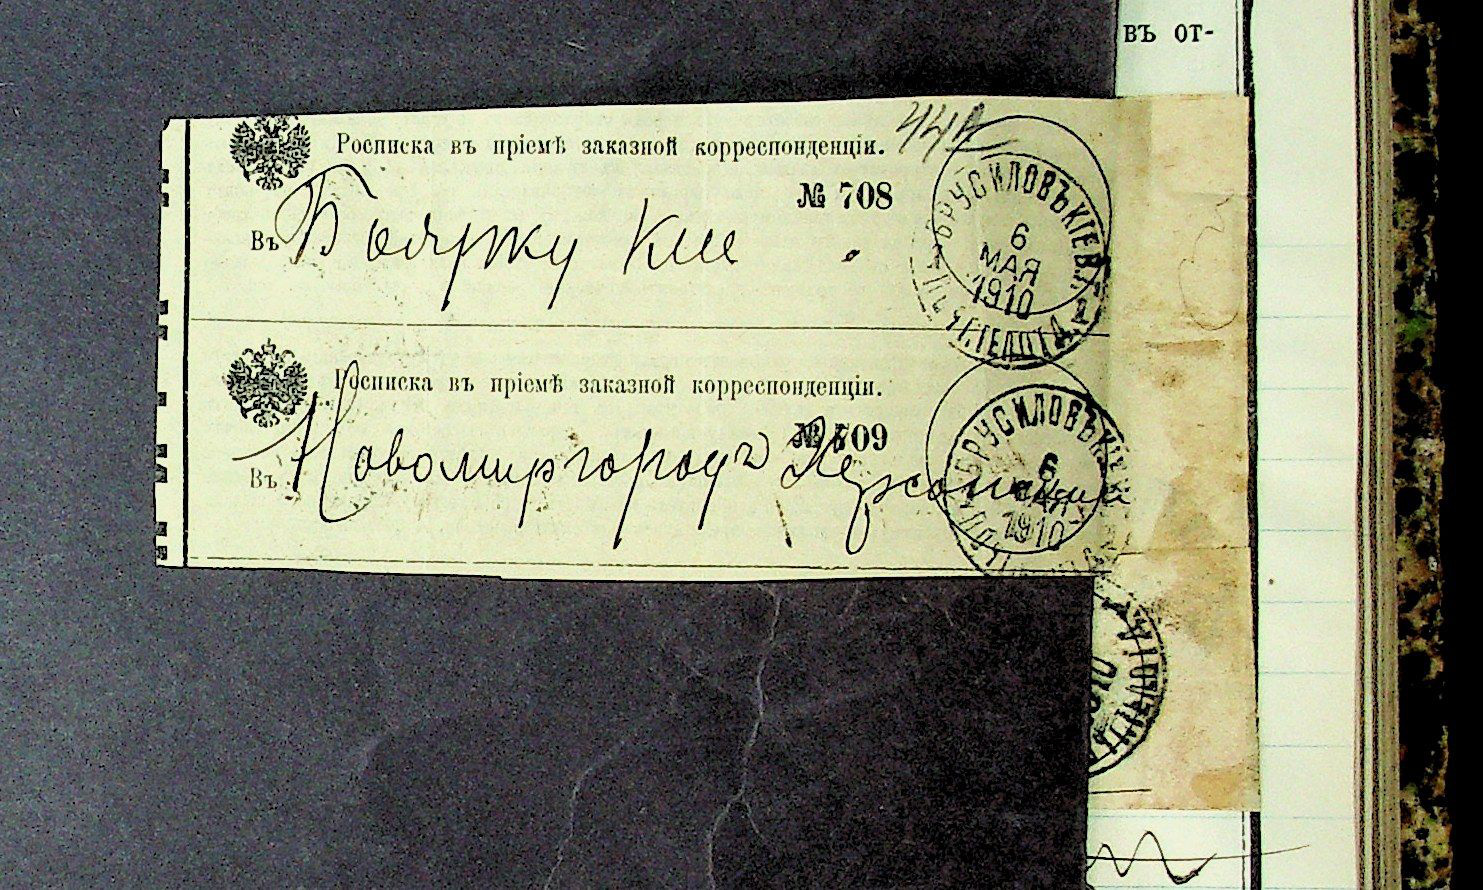 въ от-
Росписка въ пріемѣ заказной корреспонденціи.
№ 708
Въ Боярку Кіе
БРУСИЛОВЪ КІЕВ.
6
МАЯ
1910
П.-Т. ОТД.
Росписка въ пріемѣ заказной корреспонденціи.
№ 709
Въ Новомиргородъ Херсонской
БРУСИЛОВЪ КІЕВ.
6
МАЯ
1910